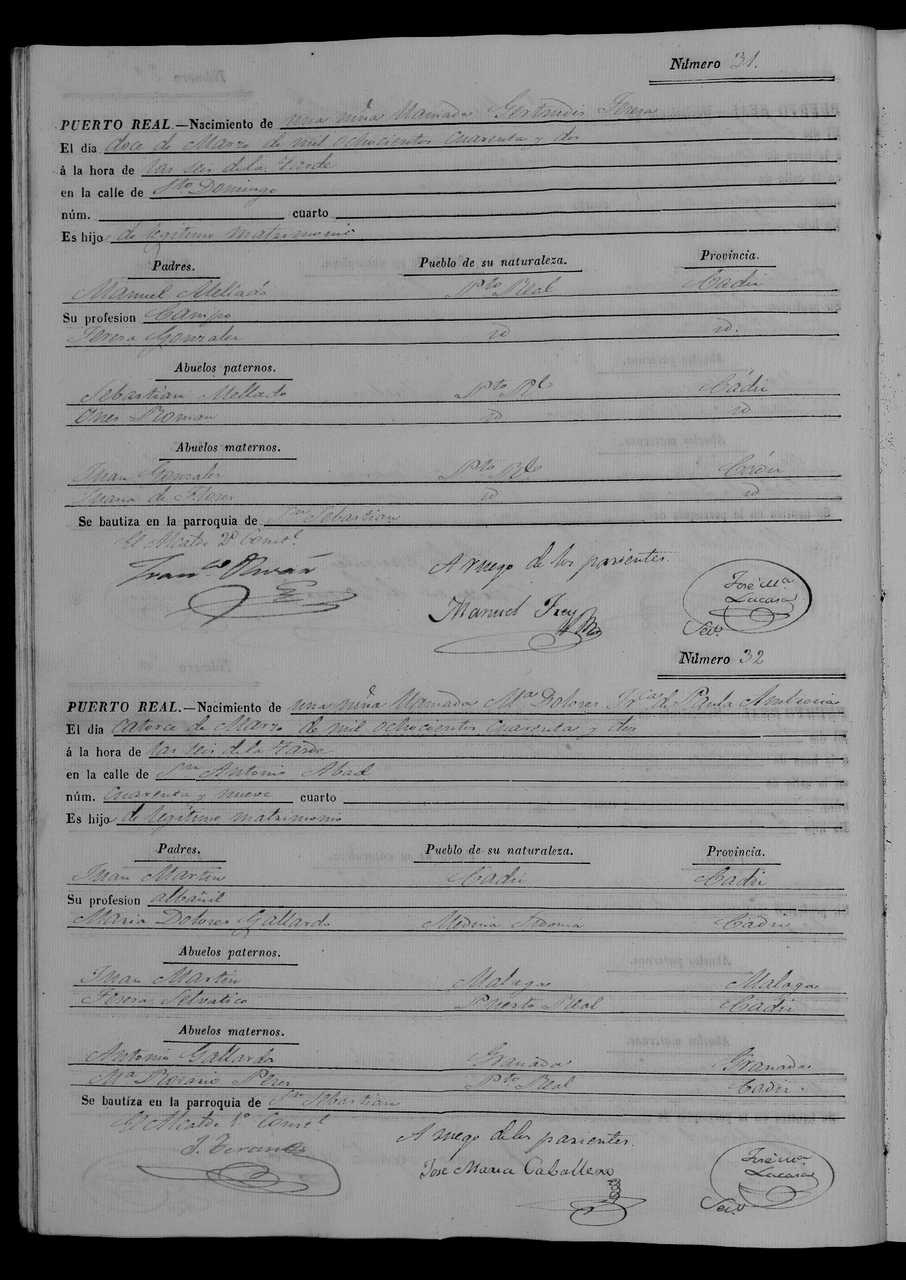 Número 31.
PUERTO REAL.—Nacimiento de una niña llamada Gertrudis Teresa
El día doce de Marzo de mil ochocientos cuarenta y dos
á la hora de las seis de la tarde
en la calle de Sto Domingo
núm. cuarto
Es hijo de legítimo matrimonio
Padres. Pueblo de su naturaleza. Provincia.
Manuel Pto Real Cadiz
Su profesion Campo
Teresa Gonzalez id id.
Abuelos paternos.
Sebastian Pto Rl Cádiz
Ines Roman id id
Abuelos maternos.
Juan Gonzalez Pto Rl Cádiz
Juana de Flores id id
Se bautiza en la parroquia de Sn Sebastian
El Alcalde 2º Const.l
A ruego de los parientes.
Manuel Frey
José Ma Lucasa
Srio
Número 32
PUERTO REAL.—Nacimiento de una niña llamada Ma Dolores Frca de Paula
El día catorce de Marzo de mil ochocientos cuarenta y dos
á la hora de las seis de la tarde
en la calle de Sn Antonio Abad
núm. cuarenta y nueve cuarto
Es hijo de legítimo matrimonio
Padres. Pueblo de su naturaleza. Provincia.
Juan Martin Cadiz Cadiz
Su profesion albañil
Maria Dolores Gallardo Medina Sidonia Cadiz
Abuelos paternos.
Juan Martin Malaga Malaga
Teresa Selvatico Puerto Real Cadiz
Abuelos maternos.
Antonio Gallardo Granada Granada
Ma Rosario Perez Pto Real Cadiz
Se bautiza en la parroquia de Sn Sebastian
El Alcalde 1º Const.l
A ruego de los parientes.
José Maria Caballero
José Ma Lucasa
Srio